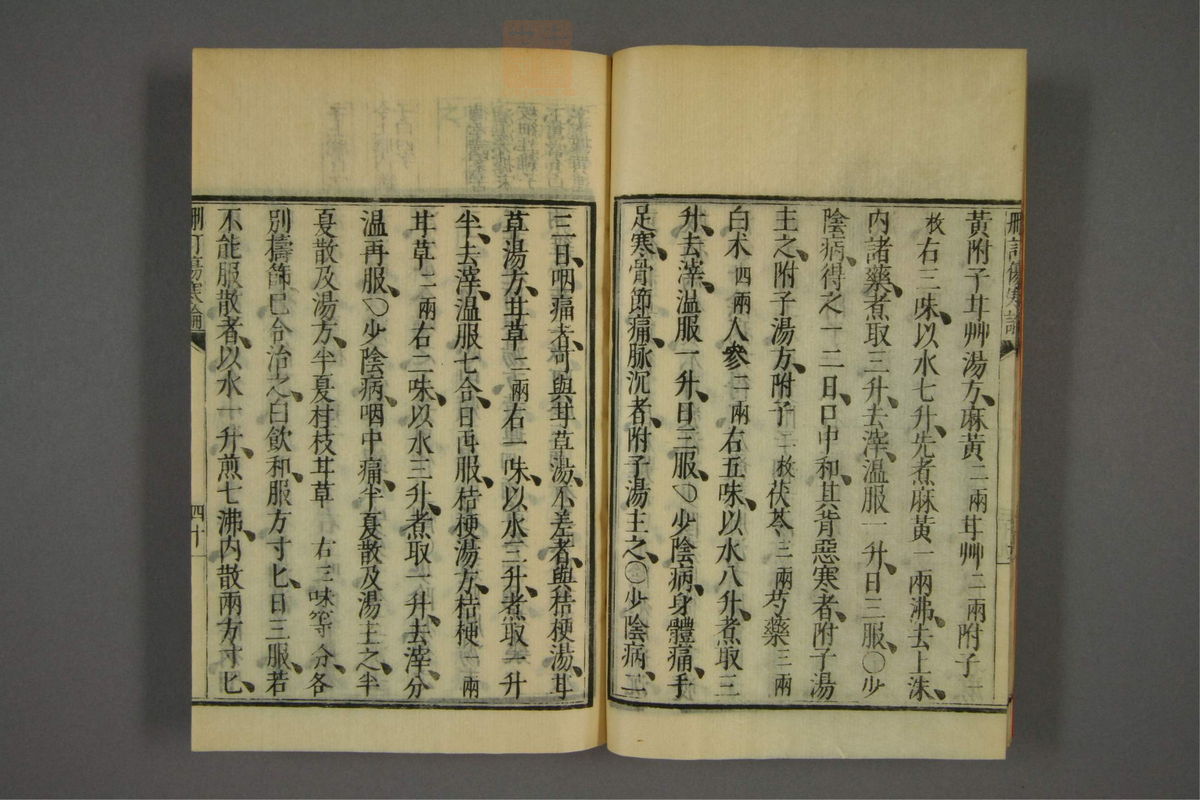 黃附子甘艸湯方麻黃二兩甘艸二兩附子一
枚右三味以水七升先煮麻黃一兩沸去上沫
内諸藥煮取三升去滓溫服一升日三服○少
陰病得之一二日口中和其背惡寒者附子湯
主之附子湯方附子二枚茯苓三兩芍藥三兩
白朮四兩人參二兩右五味以水八升煮取三
升去滓溫服一升日三服○少陰病身體痛手
足寒骨節痛脉沉者附子湯主之○少陰病二
三日咽痛者可與甘草湯不差者與桔梗湯甘
草湯方甘草二兩右一味以水三升煮取一升
半去滓溫服七合日再服桔梗湯方桔梗一兩
甘草二兩右二味以水三升煮取一升去滓分
溫再服○少陰病咽中痛半夏散及湯主之半
夏散及湯方半夏桂枝甘草右三味等分各
別擣篩已合治之白飲和服方寸匕日三服若
不能服散者以水一升煎七沸内散兩方寸匕
刪訂傷寒論
四十